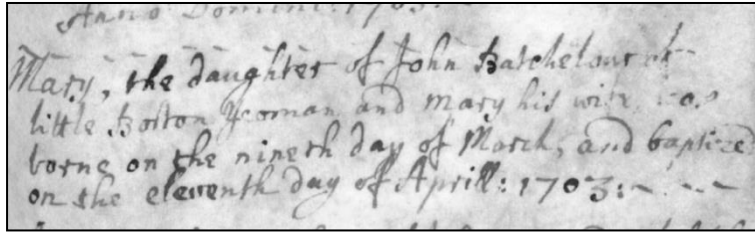 Anno Domini: 1703.
Mary, the daughter of John Batchelour of
little Boston yeoman and Mary his wife was
borne on the nineth day of March, and baptized
on the eleventh day of Aprill: 1703: